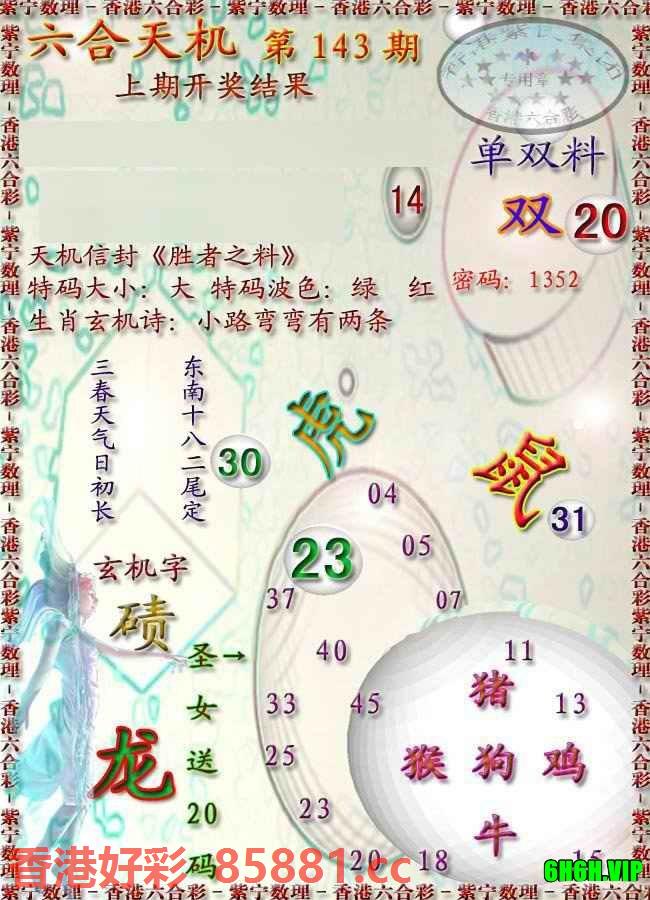 紫宁数理－香港六合彩－紫宁数理－香港六合彩－紫宁数理－香港六合彩－紫宁数理－香港六合彩
六合天机 第143期
上期开奖结果
专用章
香港六合彩
单双料
双 20
14
天机信封《胜者之料》
特码大小：大 特码波色：绿 红
密码：1352
生肖玄机诗：小路弯弯有两条
三春天气日初长
东南十八二尾定
30
虎
鼠
31
04
23
05
37
07
玄机字
碛
圣→
女
送
20
码
40
11
猪
33
45
13
龙
25
猴 狗 鸡
23
牛
20
18
15
香港好彩 85881.cc
6H6H.VIP
紫宁数理－香港六合彩－紫宁数理－香港六合彩－紫宁数理－香港六合彩